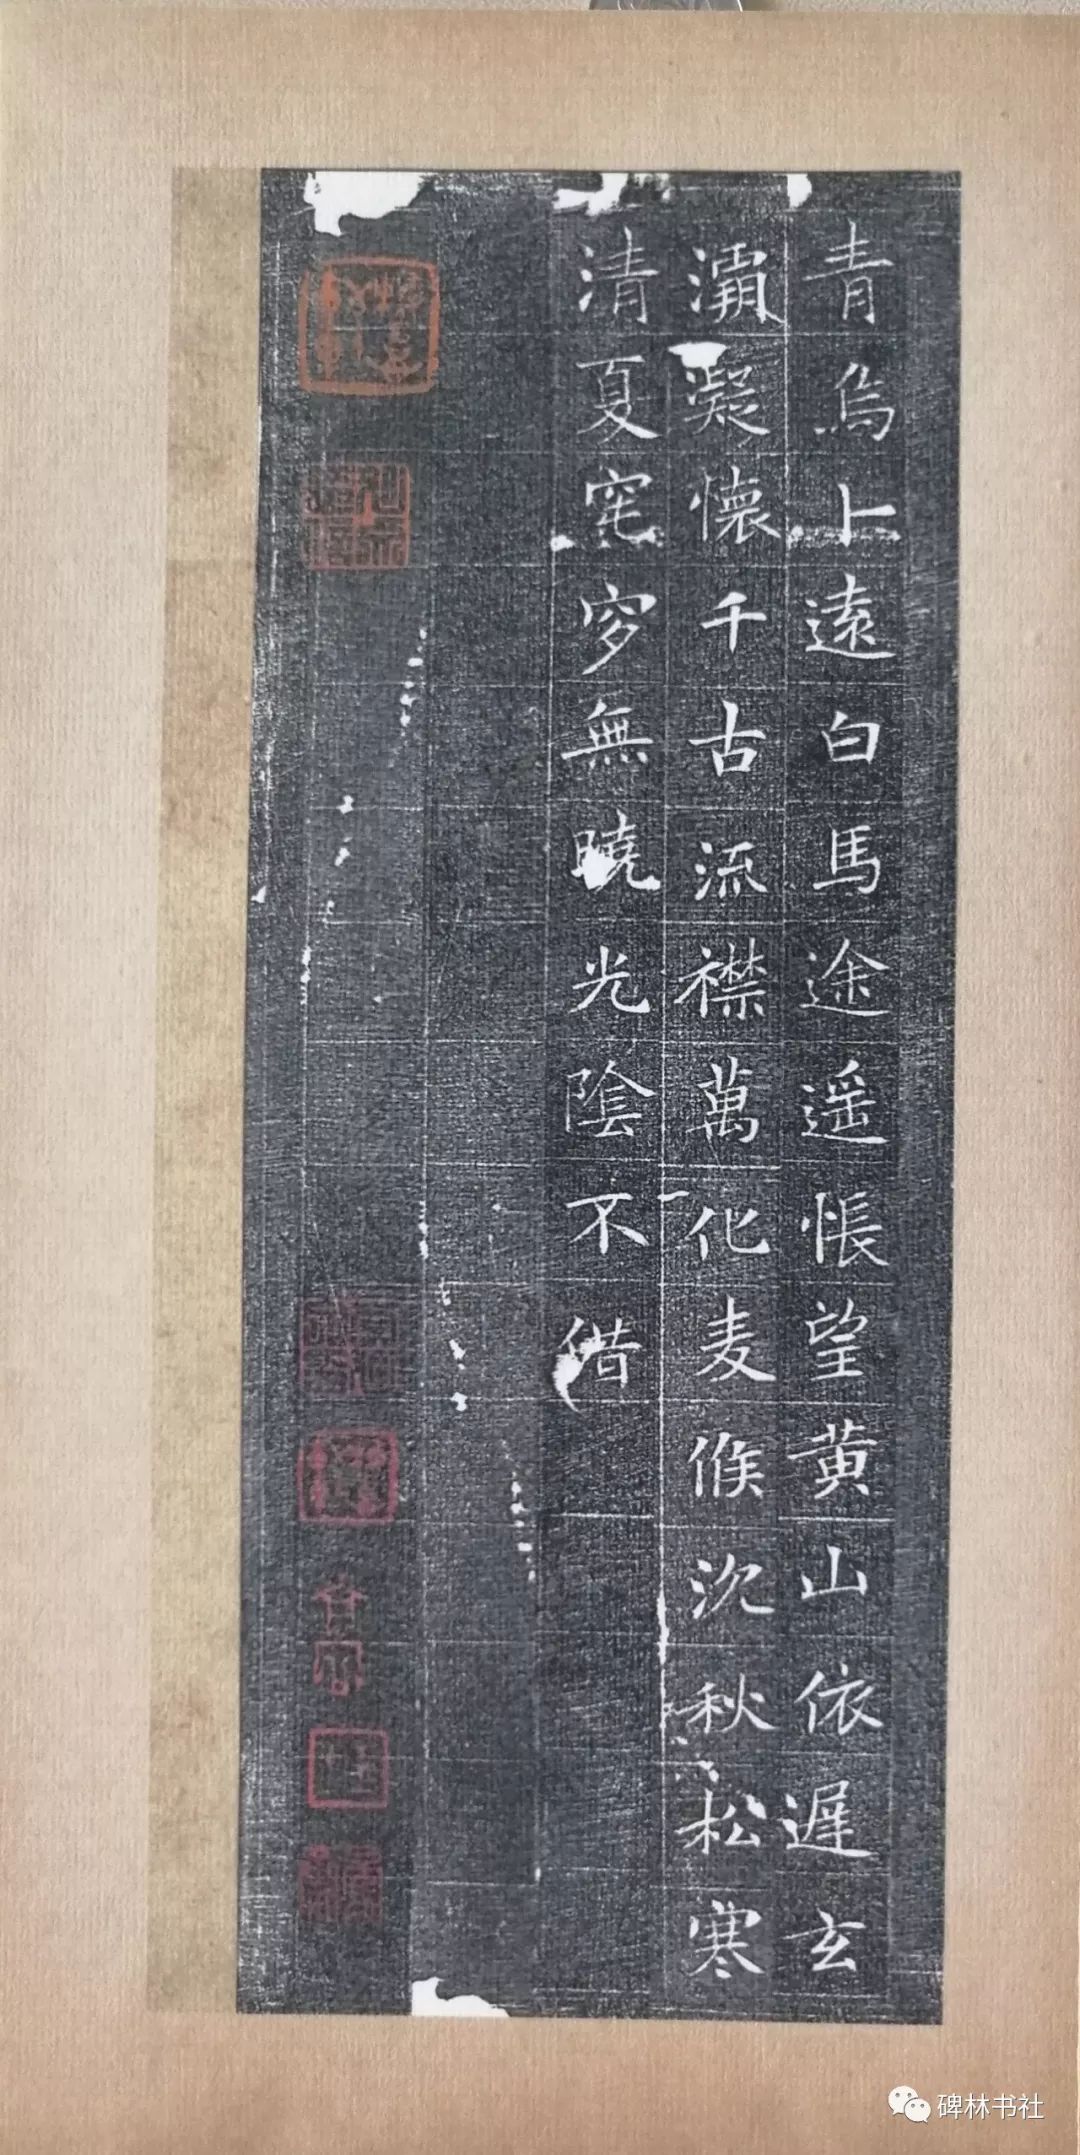 青烏卜遠白馬途遥悵望黄山依遲玄
灞凝懷千古流襟萬化麦候沈秋松寒
清夏窀穸無曉光陰不借
碑林书社